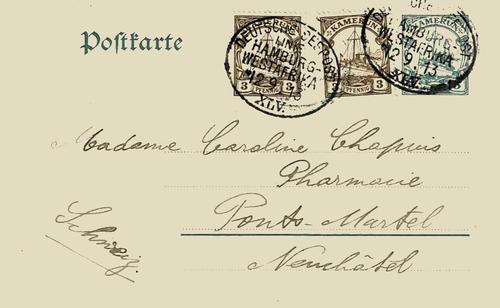 Postkarte
KAMERUN
3 PFENNIG 3
KAMERUN
3 PFENNIG 3
KAMERUN
DEUTSCHE SEEPOST
LINIE
HAMBURG-
WESTAFRIKA
12 9 13
XLV.
HAMBURG-
WESTAFRIKA
12 9 13
XLV.
Madame Caroline Chapuis
Pharmacie
Ponts-Martel
Schweiz.
Neuchâtel